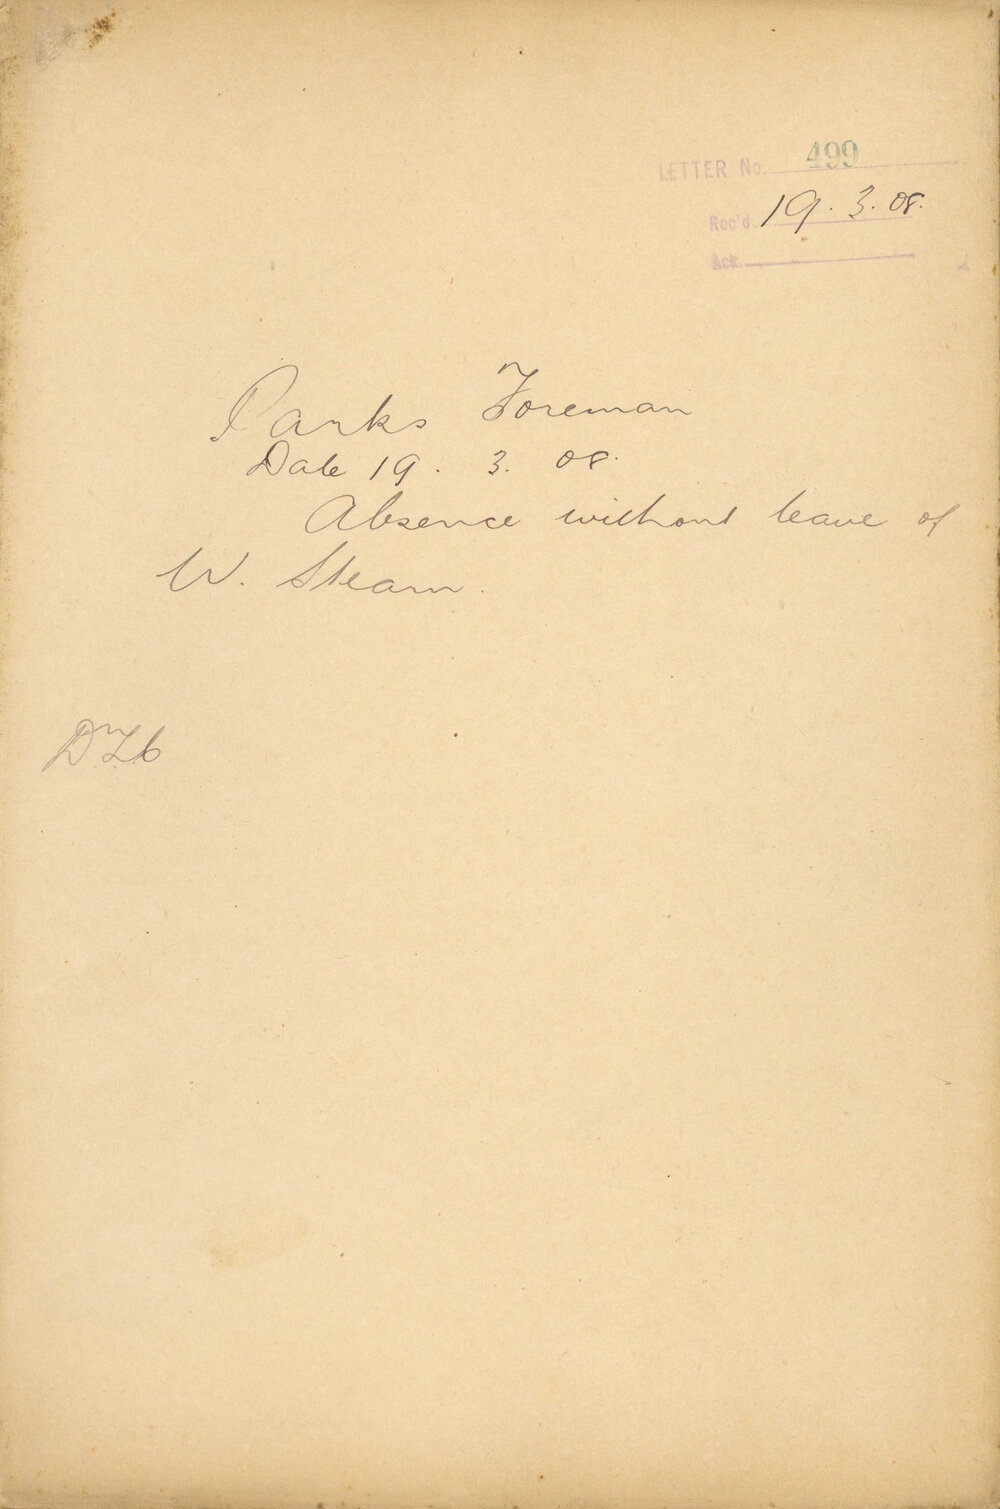 LETTER No. 499
Rec'd. 19. 3. 08.
Ack.
Parks Foreman
Date 19. 3. 08.
Absence without leave of
W. Stearn.